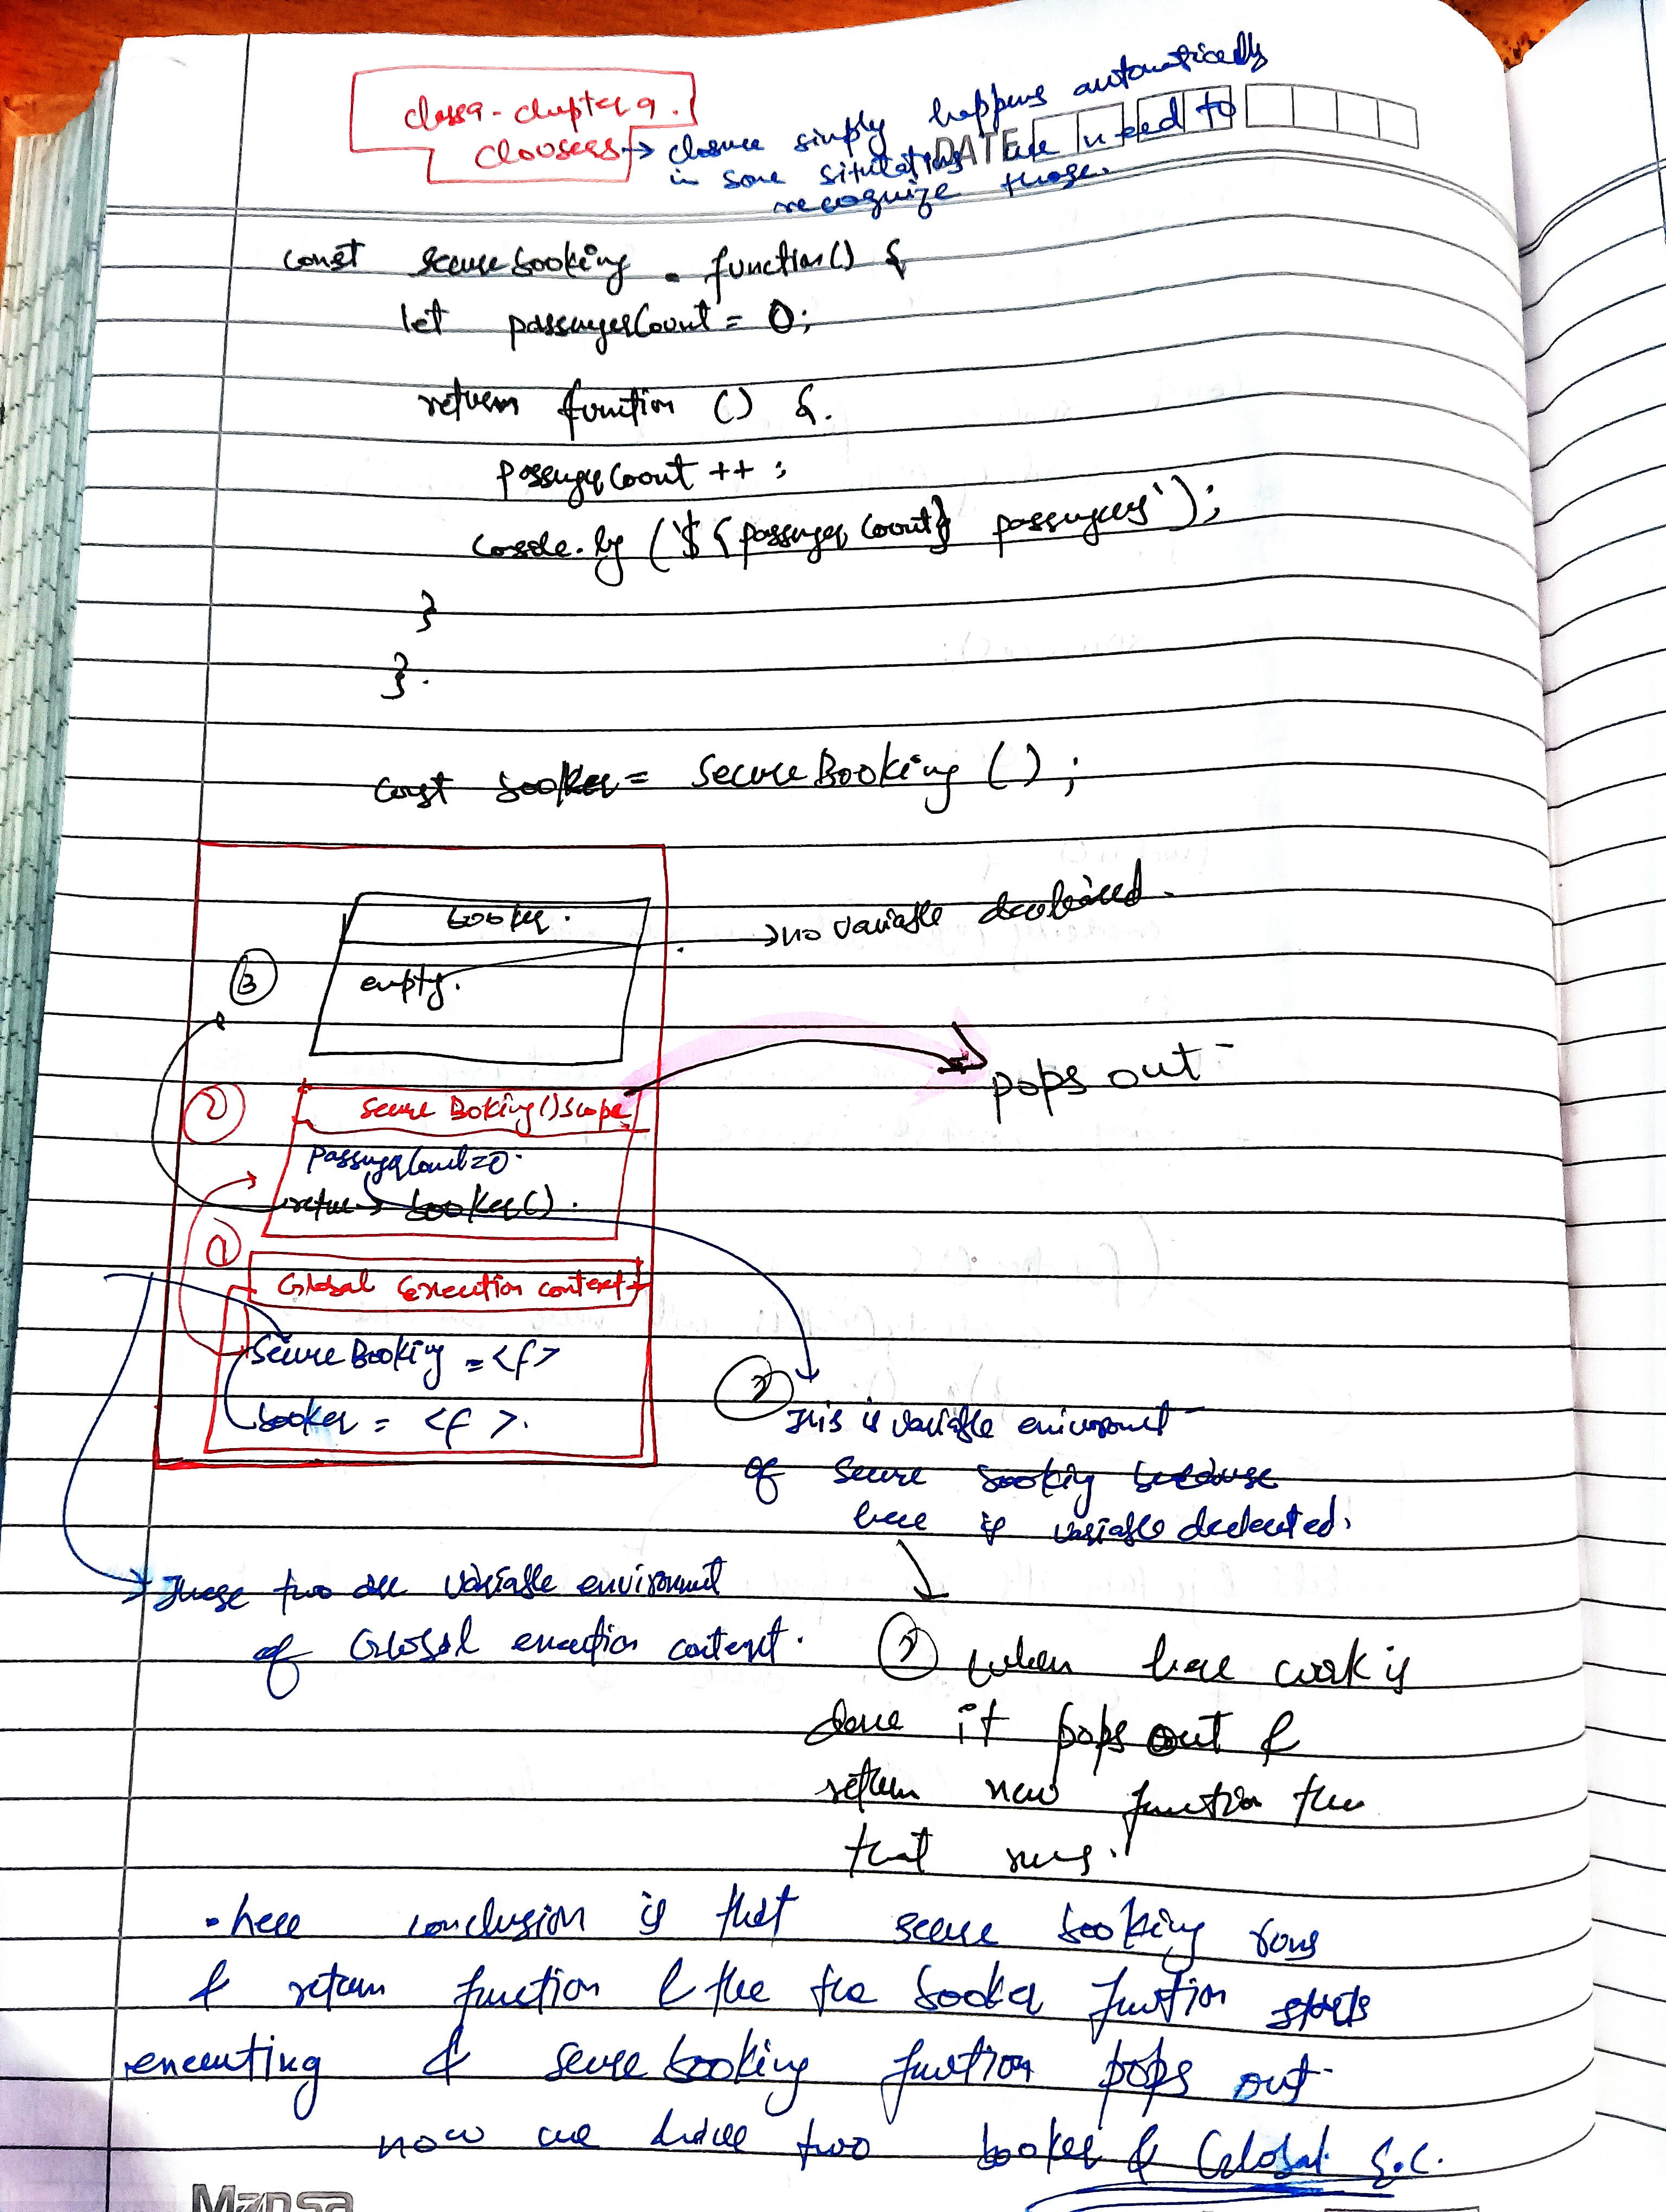 class 9 - chapter 9.
Clousers → closure simply happens automatically
in some situtations we need to
recognize those.
DATE
const securebooking = function() {
let passengerCount = 0;
return function () {
passengerCount ++ ;
console.log (`${passengerCount} passengers`);
}
}.
const booker = SecureBooking ( ) ;
booker.
→ no variable declaired.
3
empty.
pops out
2
Secure Boking() scope
passengerCount = 0.
return booker( ).
1
Global Execution context
Secure Booking = <f>
booker = <f>.
This is variable enviroment
of secure booking because
here is variable declected.
→ These two are variable enviroment
of Global exection context.
When here work is
done it pops out &
return new function the
that runs.
• here conclusion is that secure booking runs
& return function & the the booker function starts
executing & secure booking function pops out
now we have two booker & Global E.C.
Mansa